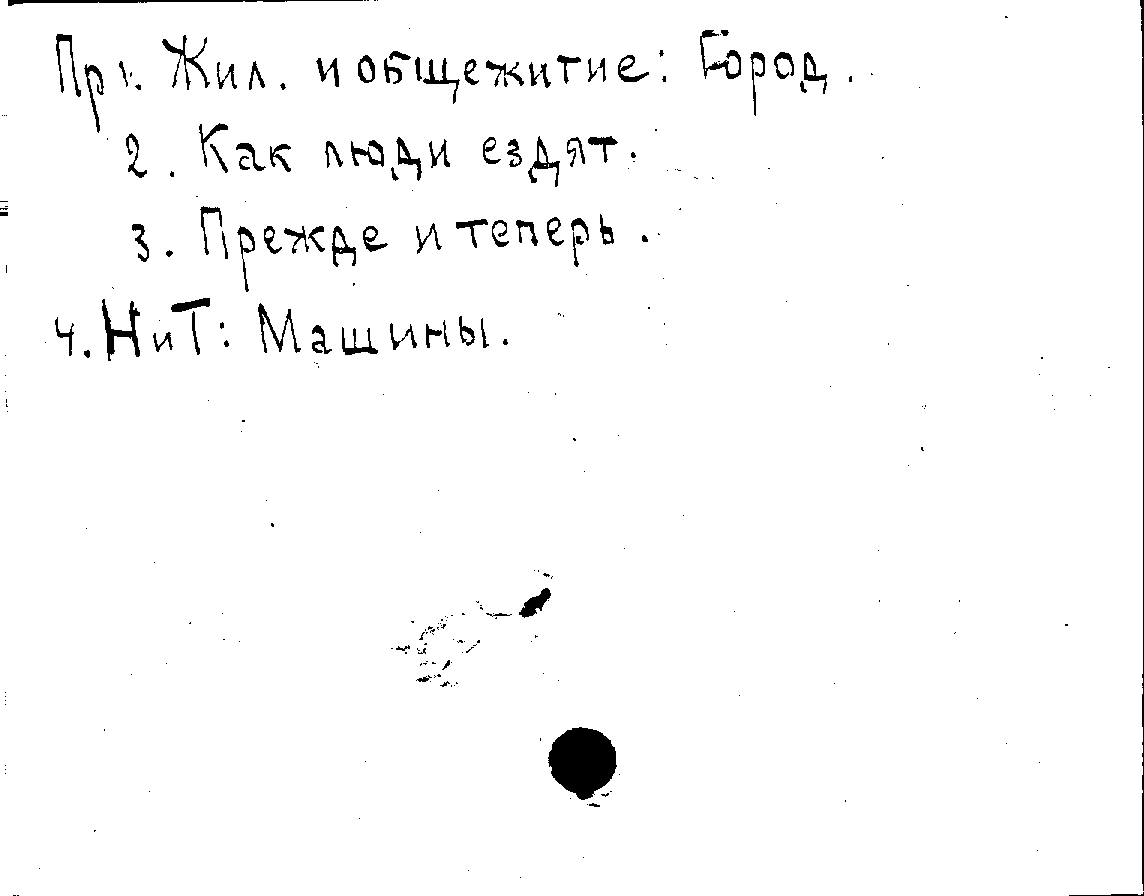 Пр 1. Жил. и общежитие: Город.
2. Как люди ездят.
3. Прежде и теперь.
4. НиТ: Машины.